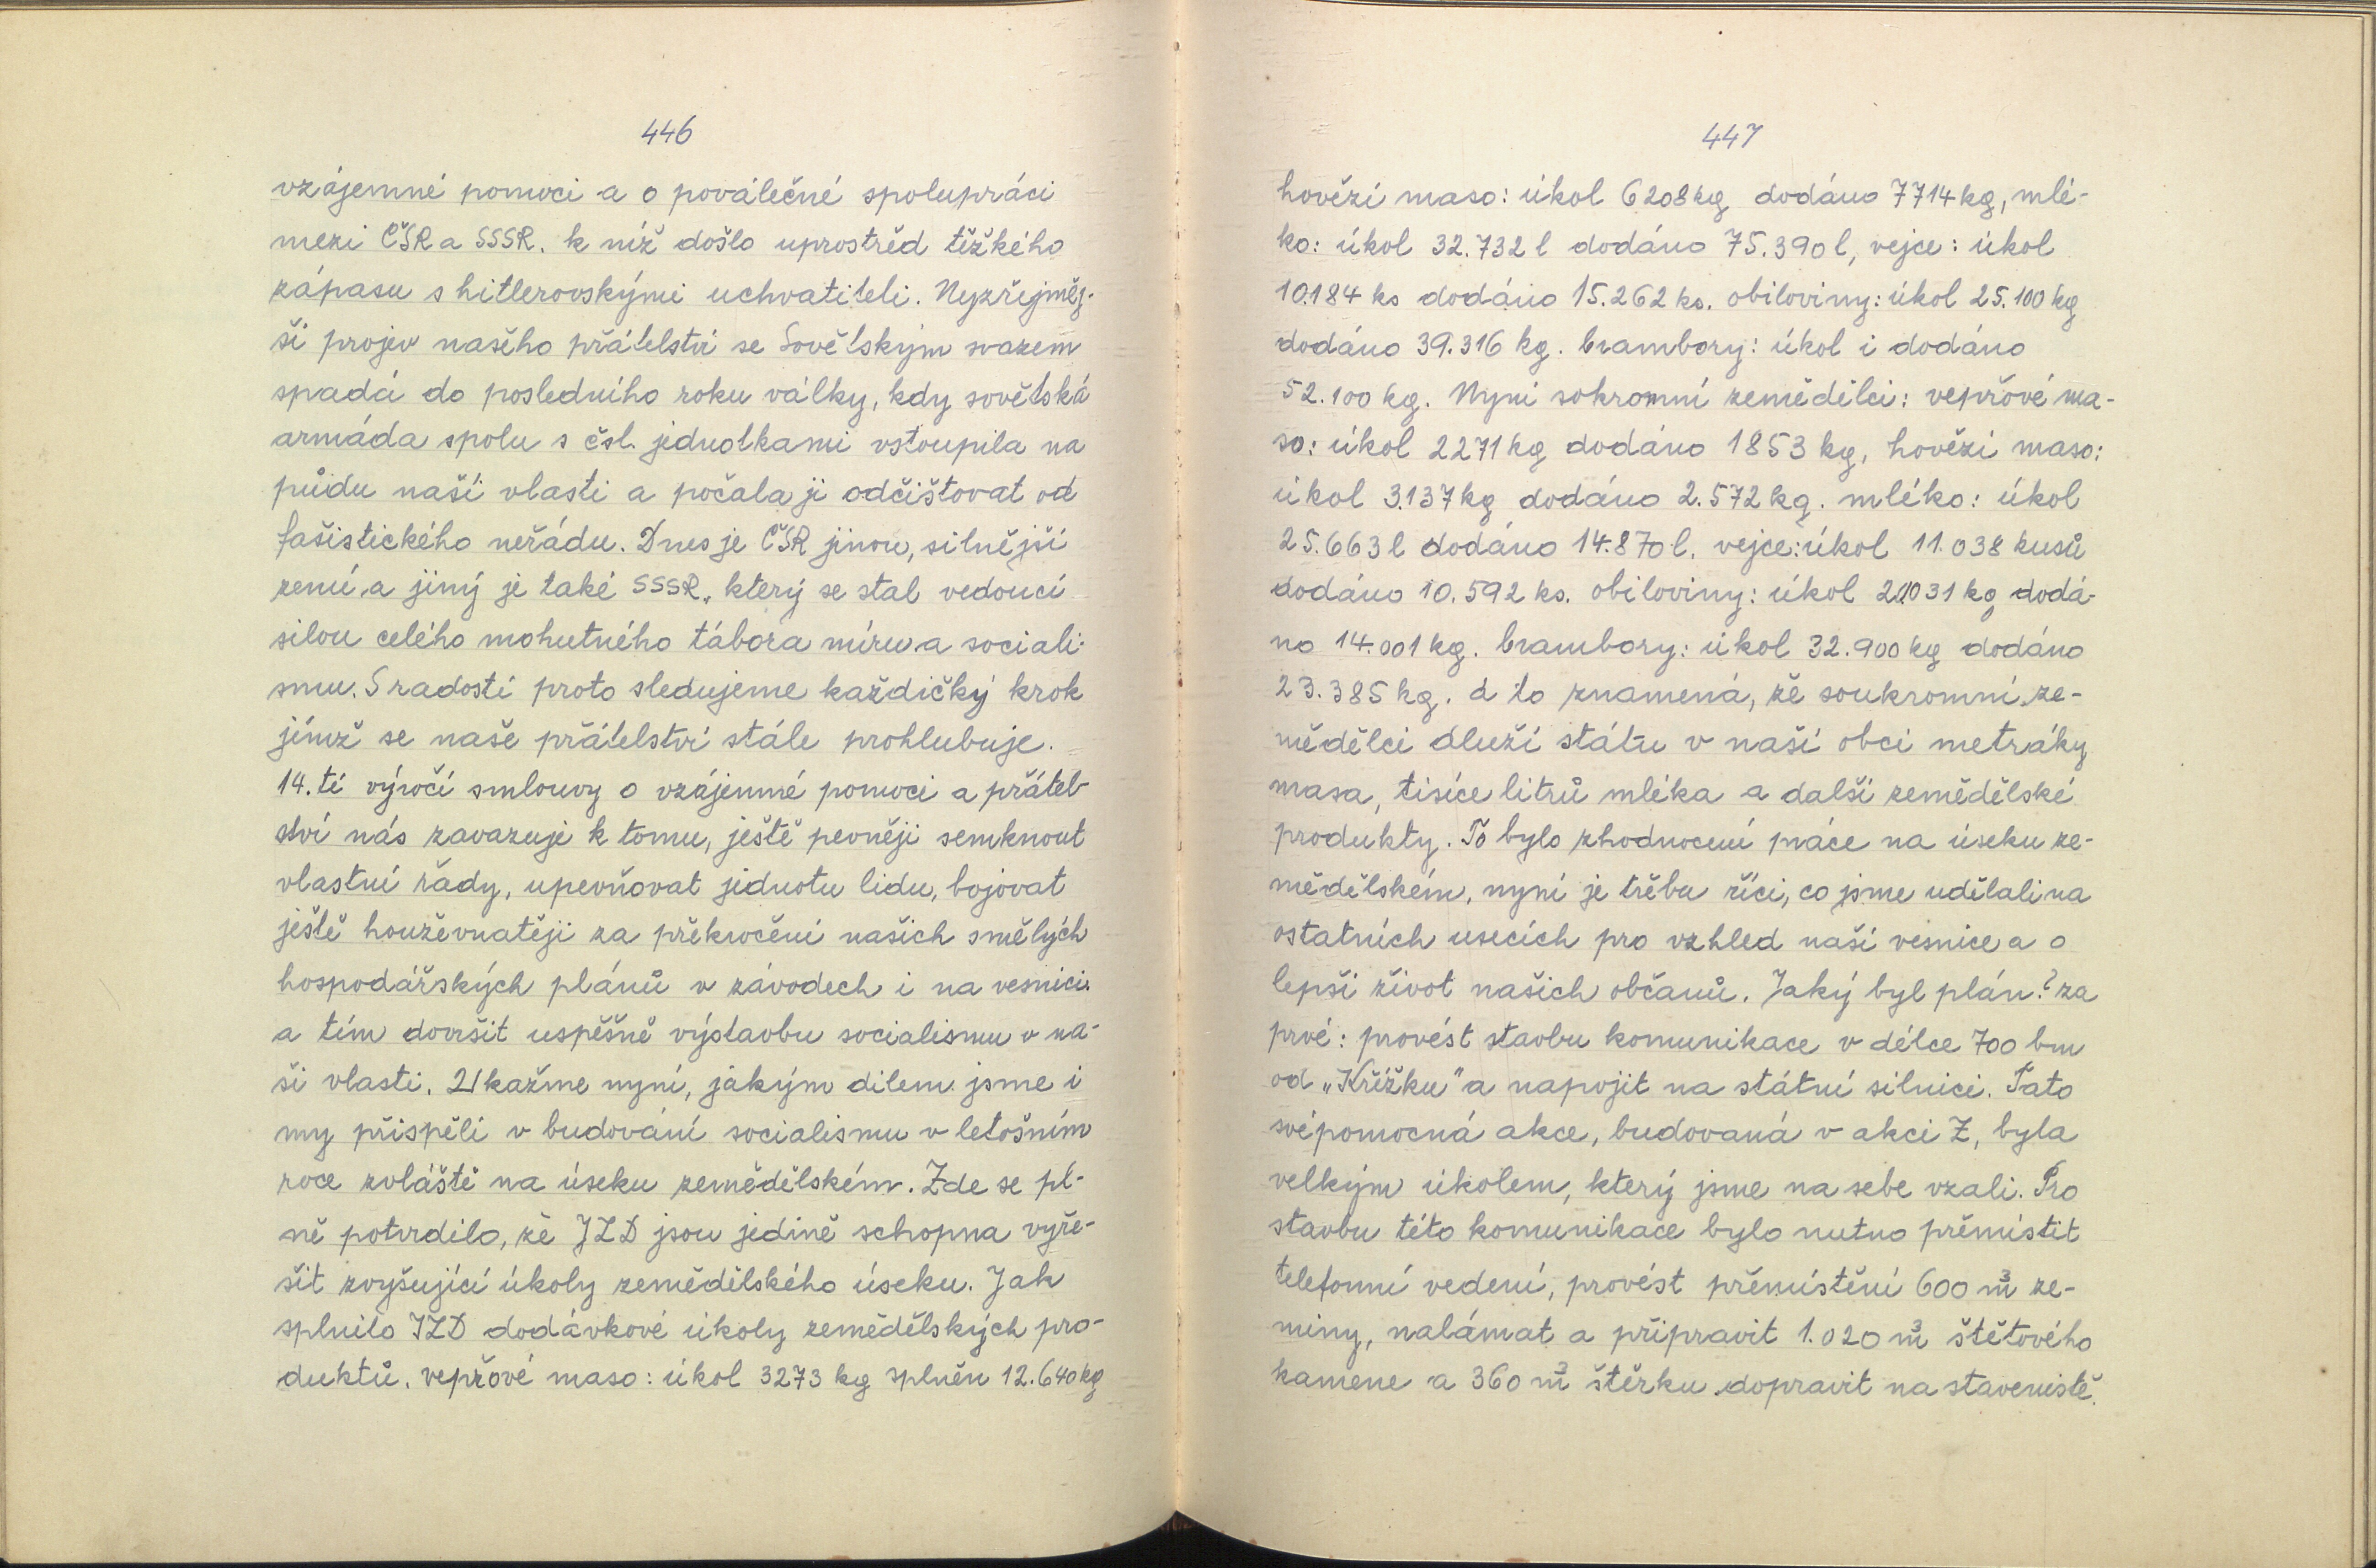 446
vzájemné pomoci a o poválečné spolupráci
mezi ČSR a SSSR. k níž došlo uprostřed těžkého
zápasu s hitlerovskými uchvatiteli. Nyzřejměj-
ší projev našeho přátelství se Sovětským svazem
spadá do posledního roku války, kdy sovětská
armáda spolu s čsl. jednotkami vstoupila na
půdu naší vlasti a počala ji odčišťovat od
fašistického neřádu. Dnes je ČSR jinou, silnější
zemí, a jiný je také SSSR, který se stal vedoucí
silou celého mohutného tábora míru a sociali-
smu. S radostí proto sledujeme každičký krok
jímž se naše přátelství stále prohlubuje.
14. té výročí smlouvy o vzájemné pomoci a přátel-
ství nás zavazuje k tomu, ještě pevněji semknout
vlastní řady, upevňovat jednotu lidu, bojovat
ještě houževnatěji za překročení našich smělých
hospodářských plánů v závodech i na vesnici.
a tím dovršit uspěšně výstavbu socialismu v na-
ši vlasti. Ukažme nyní, jakým dílem jsme i
my přispěli v budování socialismu v letošním
roce zvláště na úseku zemědělském. Zde se pl-
ně potvrdilo, že JZD jsou jedině schopna vyře-
šit zvyšující úkoly zemědělského úseku. Jak
splnilo JZD dodávkové úkoly zemědělských pro-
duktů. vepřové maso: úkol 3273 kg splněn 12.640 kg
447
hovězí maso: úkol 6208 kg dodáno 7714 kg, mlé-
ko: úkol 32.732 l dodáno 75.390 l, vejce: úkol
10.184 ks dodáno 15.262 ks. obiloviny: úkol 25.100 kg
dodáno 39.316 kg. brambory: úkol i dodáno
52.100 kg. Nyní sokromní zemědělci: vepřové ma-
so: úkol 2271 kg dodáno 1853 kg, hovězí maso:
úkol 3.137 kg dodáno 2.572 kg. mléko: úkol
25.663 l dodáno 14.870 l. vejce: úkol 11.038 kusů
dodáno 10.592 ks. obiloviny: úkol kg dodá-
no 14.001 kg. brambory: úkol 32.900 kg dodáno
23.385 kg. a to znamená, že soukromní ze-
mědělci dluží státu v naší obci metráky
masa, tisíce litrů mléka a další zemědělské
produkty. To bylo zhodnocení práce na úseku ze-
mědělském, nyní je třeba říci, co jsme udělali na
ostatních usecích pro vzhled naší vesnice a o
lepší život našich občanů. Jaký byl plán? za
prvé: provést stavbu komunikace v délce 700 bm
od „Křížku" a napojit na státní silnici. Tato
svépomocná akce, budovaná v akci Z, byla
velkým úkolem, který jsme na sebe vzali. Pro
stavbu této komunikace bylo nutno přemístit
telefonní vedení, provést přemístění 600 m³ ze-
miny, nalámat a připravit 1.020 m³ štětového
kamene a 360 m³ štěrku dopravit na staveniště.